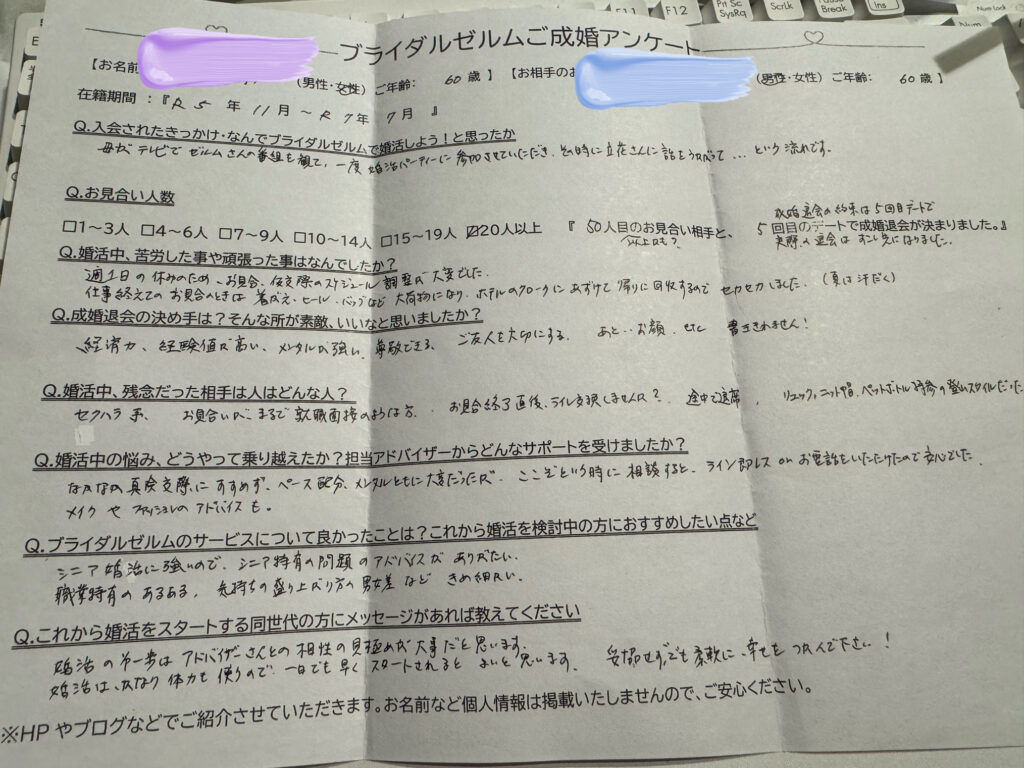 ブライダルゼルムご成婚アンケート
【お名前 (男性・女性) ご年齢: 60歳】【お相手のお (男性・女性) ご年齢: 60歳】
在籍期間:『R5年11月~R7年7月 』
Q.入会されたきっかけ・なんでブライダルゼルムで婚活しよう!と思ったか
母がテレビでゼルムさんの番組を観て、一度婚活パーティーに参加させていただき、その時に立花さんに話をうかがって…という流れです。
Q.お見合い人数
成婚退会の約束は5回目デートで
□1~3人 □4~6人 □7~9人 □10~14人 □15~19人 ☑20人以上 『 50人目のお見合い相手と、 5回目のデートで成婚退会が決まりました。』
以上かも?
実際の退会は 少し先になりました。
Q.婚活中、苦労した事や頑張った事はなんでしたか?
週1日の休みのため、お見合、仮交際のスケジュール調整が大変でした。
仕事終えてのお見合のときは 着がえ、ヒール、バッグなど大荷物になり、ホテルのクロークにあずけて帰りに回収するのでセカセカしました。(夏は汗だく)
Q.成婚退会の決め手は?そんな所が素敵、いいなと思いましたか?
経済力、経験値が高い、メンタルが強い、尊敬できる、 ご友人を大切にする。 あと…お顔、etc 書ききれません!
Q.婚活中、残念だった相手は人はどんな人?
セクハラ系、 お見合いがまるで就職面接のような方、 お見合終了直後、ライン交換しませんか? 途中で退席、 リュック、ニット帽、ペットボトル持参の登山スタイルだった
Q.婚活中の悩み、どうやって乗り越えたか?担当アドバイザーからどんなサポートを受けましたか?
なかなか真剣交際にすすめず、ペース配分、メンタルともに大変だったが、ここぞという時に相談すると、ライン即レス or お電話をいただけたので安心でした。
メイクやファッションのアドバイスも。
Q.ブライダルゼルムのサービスについて良かったことは?これから婚活を検討中の方におすすめしたい点など
シニア婚活に強いので、シニア特有の問題のアドバイスがありがたい。
職業特有のあるある、気持ちの盛り上がり方の男女差などきめ細かい。
Q.これから婚活をスタートする同世代の方にメッセージがあれば教えてください
婚活の第一歩はアドバイザーさんとの相性の見極めが大事だと思います。
婚活は、かなり体力も使うので一日でも早くスタートされるとよいと思います。 妥協せず、でも柔軟に、幸せをつかんで下さい!
※HPやブログなどでご紹介させていただきます。お名前など個人情報は掲載いたしませんので、ご安心ください。
F11
F12
Prt Sc
SysRq
ScrLk
Pause
Break
Ins
Num Lock
Num
E